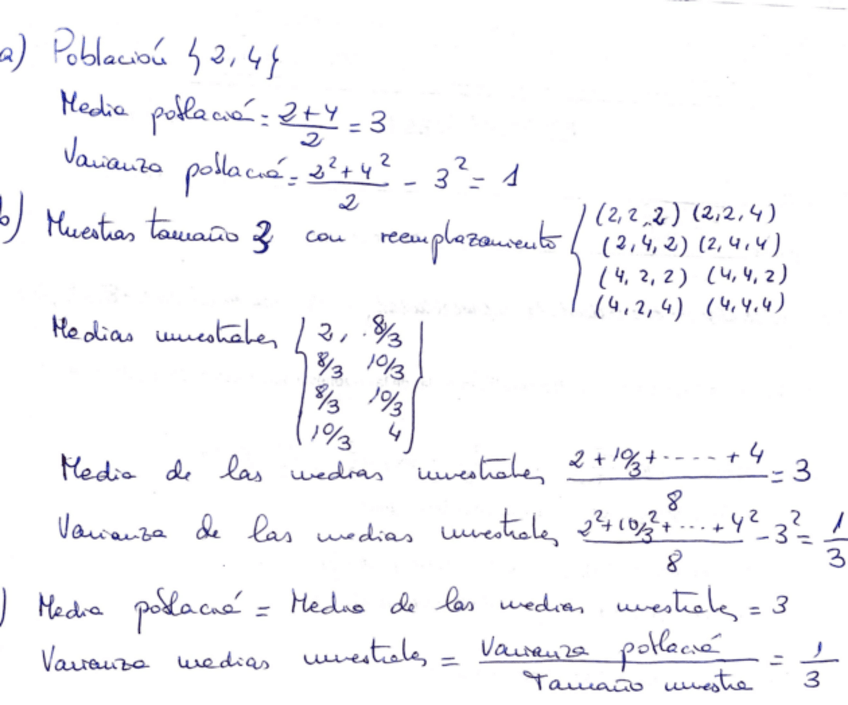 a) Población {2, 4}
Media població = (2+4)/2 = 3
Varianza població = (2²+4²)/2 - 3² = 1
b) Muestras tamaño 3 con reemplazamiento { (2, 2, 2) (2, 2, 4)
(2, 4, 2) (2, 4, 4)
(4, 2, 2) (4, 4, 2)
(4, 2, 4) (4, 4, 4)
Medias muestrales { 2, 8/3
8/3 10/3
8/3 10/3
10/3 4 }
Media de las medias muestrales (2 + 10/3 + ----- + 4)/8 = 3
Varianza de las medias muestrales (2² + 10/3² + ... + 4²)/8 - 3² = 1/3
) Media població = Media de las medias muestrales = 3
Varianza medias muestrales = Varianza població / Tamaño muestra = 1/3